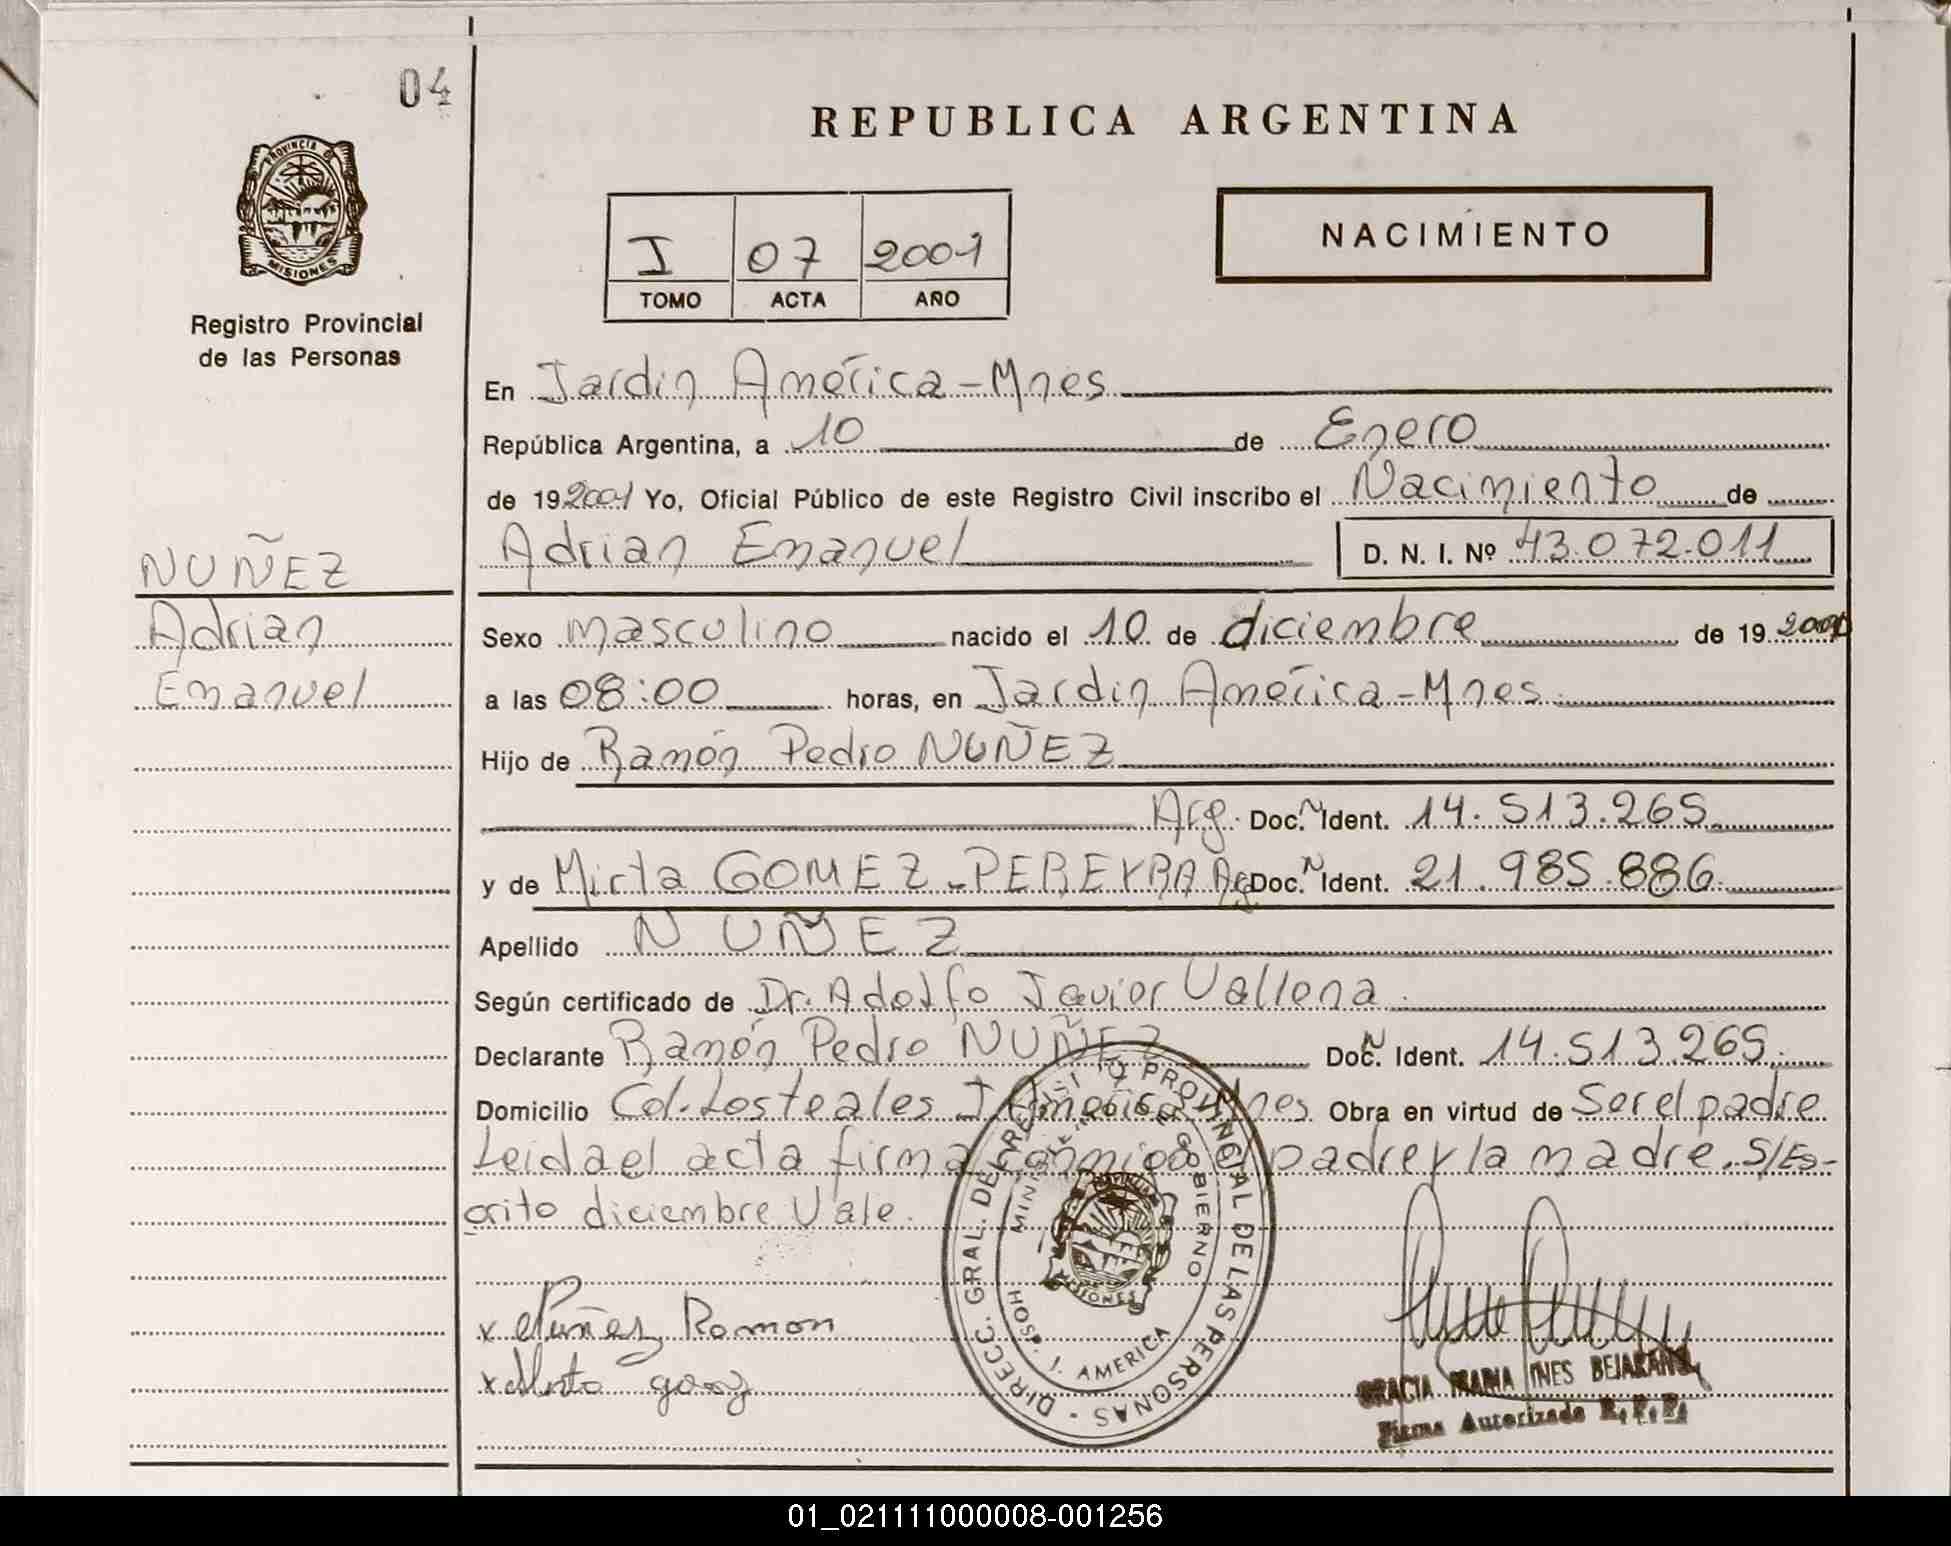 04
REPUBLICA ARGENTINA
PROVINCIA D
MISIONES
Registro Provincial
de las Personas
NACIMIENTO
I 07 2001
TOMO ACTA AÑO
En Jardin América-Mnes
República Argentina, a 10 de Enero
de 19 2001 Yo, Oficial Público de este Registro Civil inscribo el Nacimiento de
Adrian Emanuel D. N. I. Nº 43.072.011
NUÑEZ
Adrian
Emanuel
Sexo masculino nacido el 10 de diciembre de 19 2000
a las 08:00 horas, en Jardin América-Mnes.
Hijo de Ramón Pedro NUÑEZ
Arg. Doc. N Ident. 14.513.265
y de Mirta GOMEZ-PEREYRA Arg. Doc. N Ident. 21.985.886
Apellido NUÑEZ
Según certificado de Dr. Adolfo Javier Vallena
Declarante Ramón Pedro NUÑEZ Doc. N Ident. 14.513.265
Domicilio Col. Los teales J. América Mnes Obra en virtud de Ser el padre
Leida el acta firma conmigo el padre y la madre. S/Es-
crito diciembre Vale.
x Nuñez Ramon
x Mirta
DIRECC. GRAL. DE REGISTRO PROVINCIAL DE LAS PERSONAS
MINISTERIO DE GOBIERNO
MISIONES
HOSP. J. AMERICA
GRACIA MARIA INES BEJARANO
Firma Autorizada R. P. P.
01_021111000008-001256